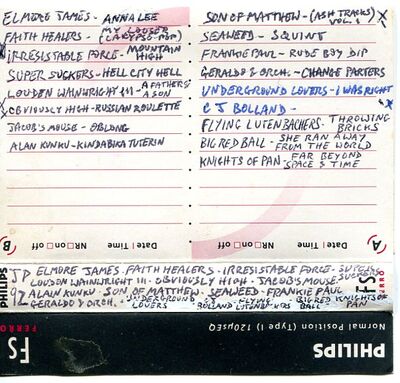 ELMORE JAMES - ANNALEE
FAITH HEALERS - MY LOUSER (CALYPSO-POP)
IRRESISTABLE FORCE - MOUNTAIN HIGH
SUPER SUCKERS - HELL CITY HELL
LOUDEN WAINWRIGHT III - A FATHER & A SON
OBVIOUSLY HIGH - RUSSIAN ROULETTE
JACOB'S MOUSE - OBLONG
ALAN KUNKU - KINDABIKA TUTERIN
SON OF MATTHEW - (ASH TRACKS) VOL. 1
SEAWEED - SQUINT
FRANKIE PAUL - RUDE BOY DIP
GERALDO & ORCH. - CHANGE PARTERS
UNDERGROUND LOVERS - I WAS RIGHT
C J BOLLAND -
FLYING LUTENBACHERS - THROWING BRICKS
BIG RED BALL - SHE RAN AWAY FROM THE WORLD
KNIGHTS OF PAN - FAR BEYOND SPACE & TIME
B NR on off Date | Time
NR on off Date | Time A
PHILIPS FERRO
JP 92
ELMORE JAMES. FAITH HEALERS - IRRESISTABLE FORCE - SUPER SUCKERS
LOUDON WAINWRIGHT III - OBVIOUSLY HIGH - JACOB'S MOUSE
ALAIN KUNKU - SON OF MATTHEW - SEAWEED - FRANKIE PAUL
GERALDO & ORCH. - UNDERGROUND LOVERS - CJ BOLLAND - FLYING LUTENBACHERS - BIG RED BALL - KNIGHTS OF PAN
FS FERRO
FS FERRO
Normal Position (Type I) 120µsEQ
PHILIPS